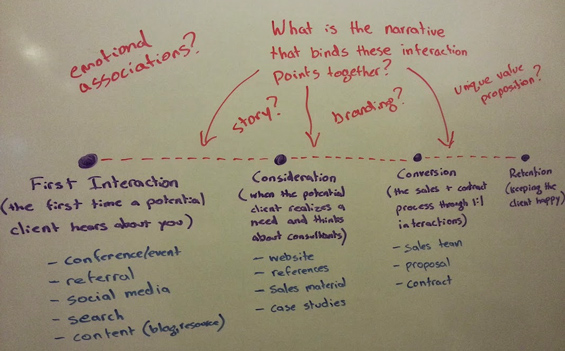 emotional
associations?
What is the narrative
that binds these interaction
points together?
story?
branding?
unique value
proposition?
First Interaction
(the first time a potential
client hears about you)
- conference/event
- referral
- social media
- search
- content (blog, resource)
Consideration
(when the potential
client realizes a
need and thinks
about consultants)
- website
- references
- sales material
- case studies
Conversion
(the sales + contract
process through 1:1
interactions)
- sales team
- proposal
- contract
Retention
(keeping the
client happy)